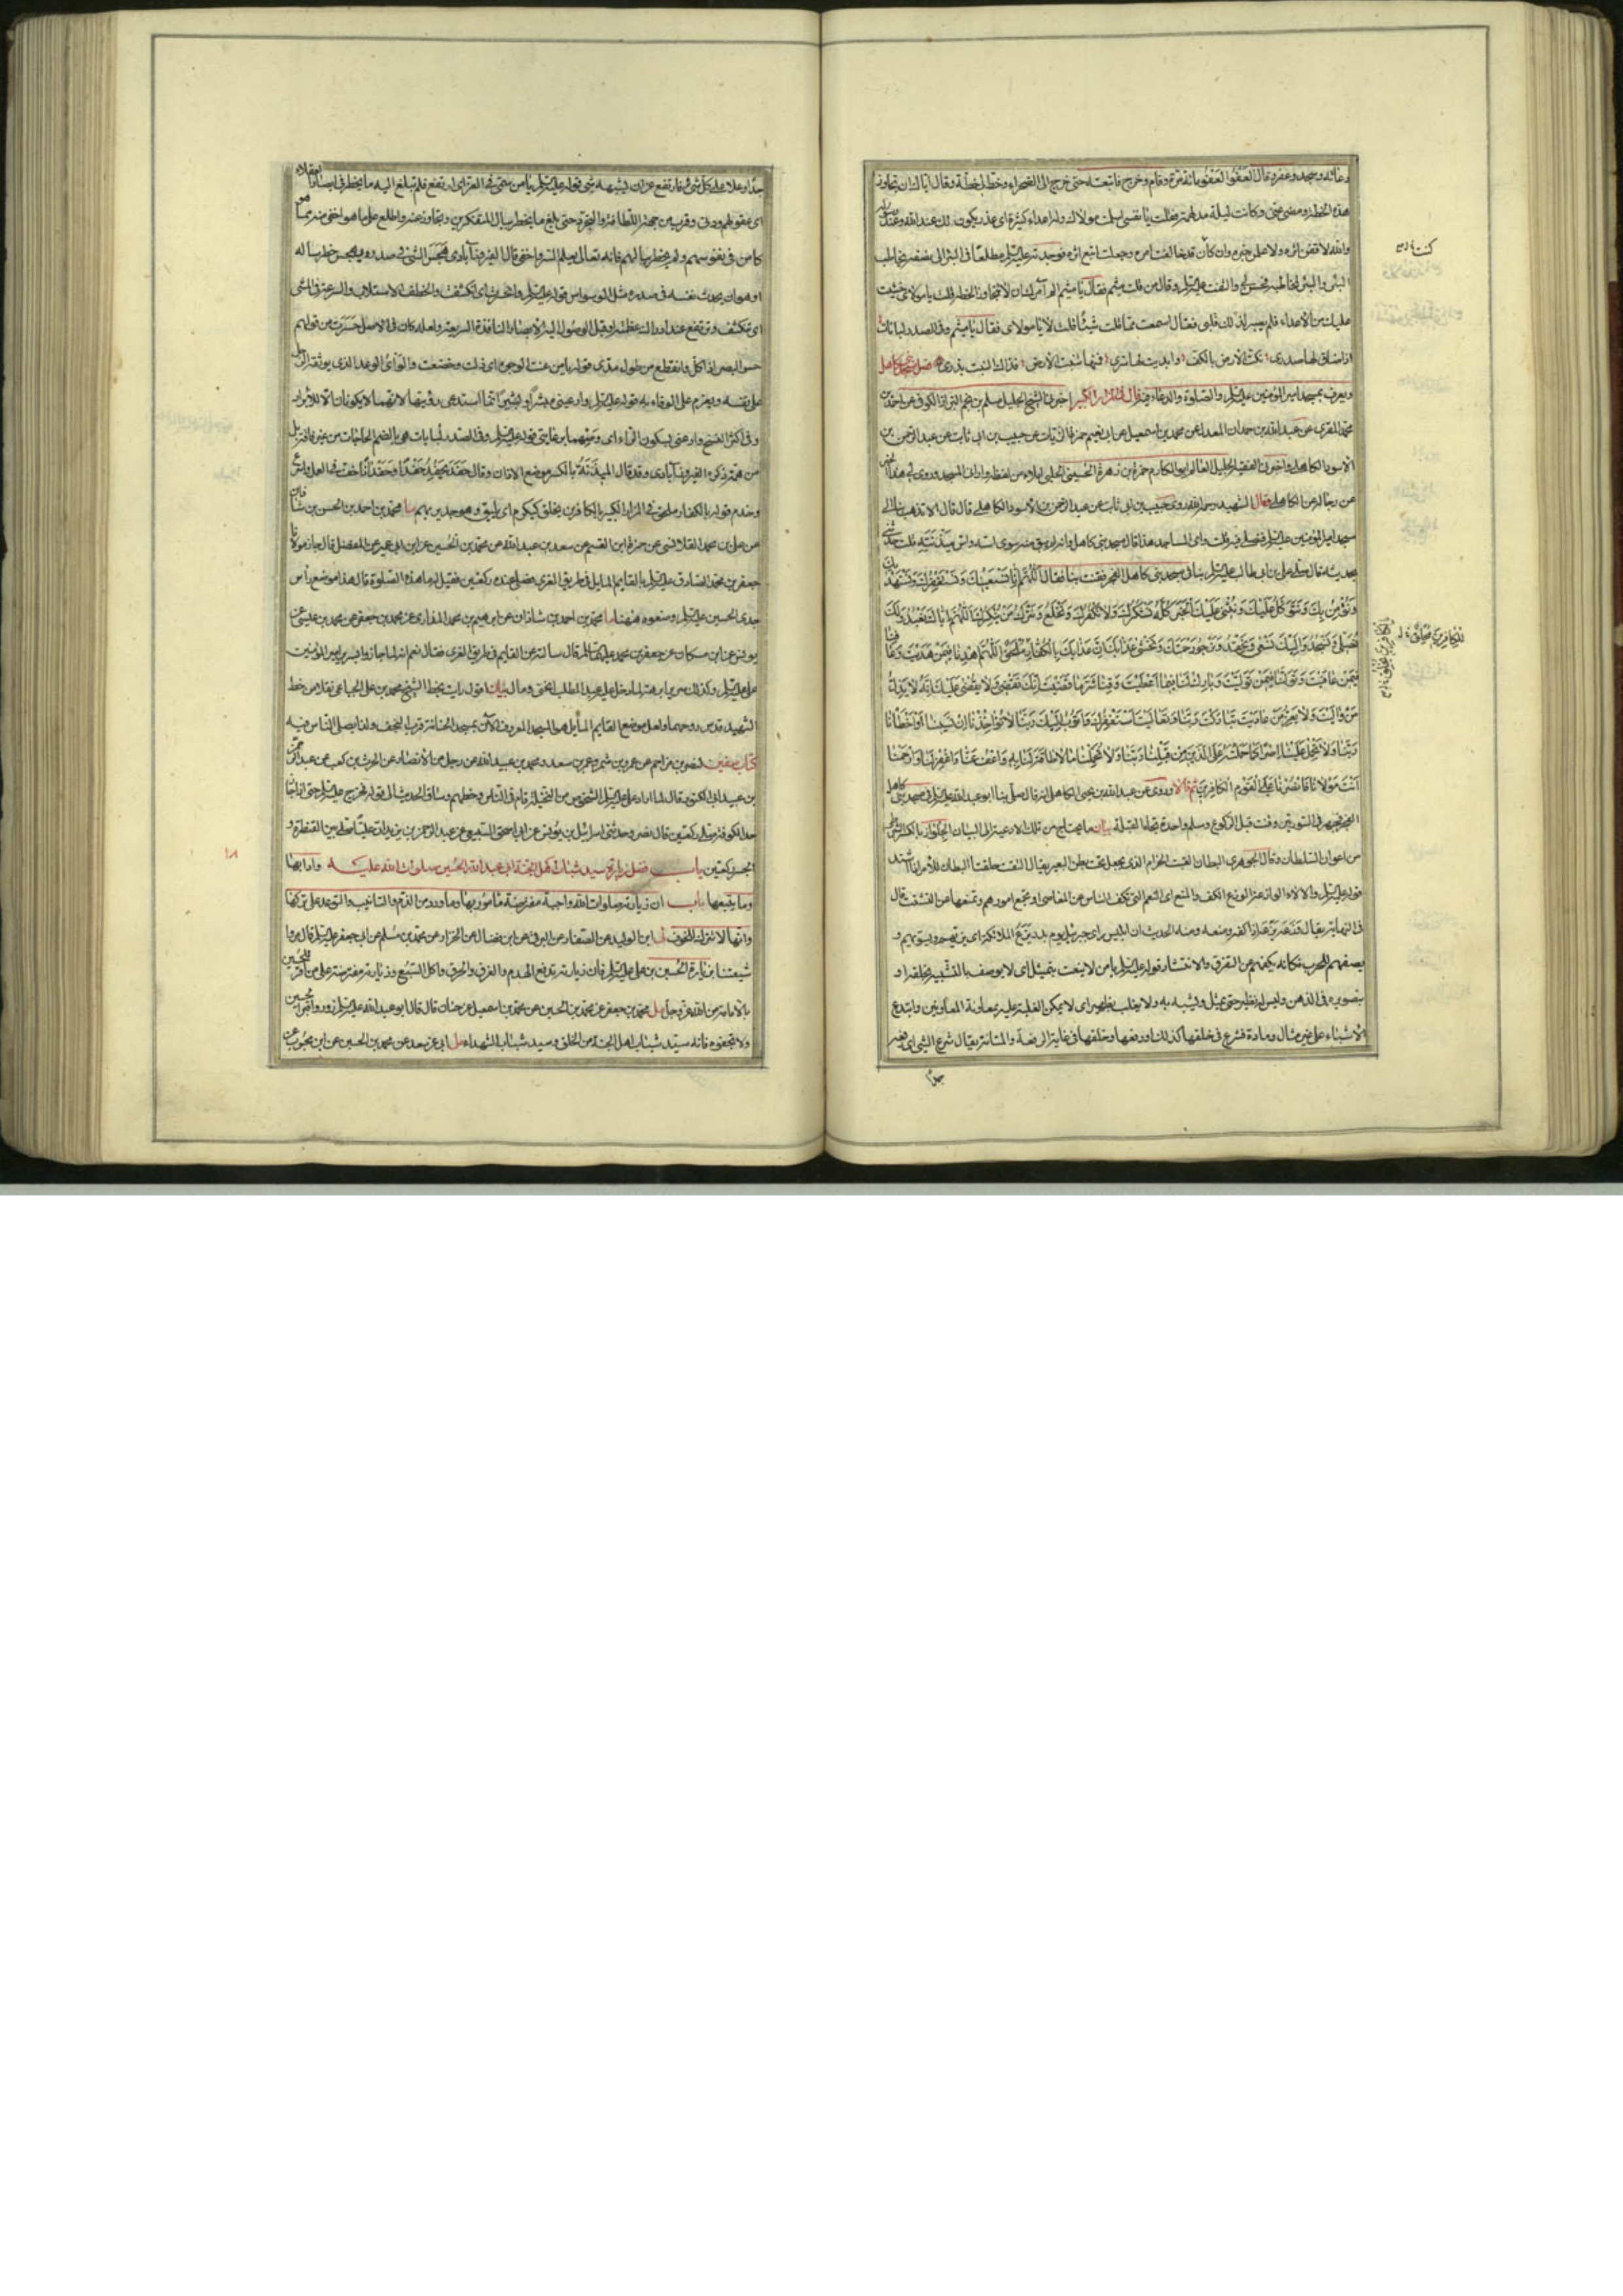 دعائه وسجد وعفر وقال العفو العفو مائة مرة وقام وخرج فاتبعته حتى خرج الى الصحراء وخط لى خطة وقال اياك ان تجاوز
هذه الخطة ومضى عنى وكانت ليلة مدلهمة فقلت يا نفسى اسلمت مولاك وله اعداء كثيرة اى عذر يكون لك عند الله وعند رسوله
والله لاقفن اثره ولاعلمن خبره وان كان قد خالفت امره وجعلت اتبع اثره فوجدته عليه السلام مطلعا فى البئر الى نصفه يخاطب
البئر والبئر تخاطبه فحس بى والتفت عليه السلام وقال من قلت ميثم فقال يا ميثم الم آمرك ان لا تتجاوز الخطة قلت يا مولاى خشيت
عليك من الاعداء فلم يصبر لذلك قلبى فقال اسمعت مما قلت شيئا قلت لا يا مولاى فقال يا ميثم وفى الصدر لبانات
اذا ضاق لها صدرى نكت الارض بالكف وابديت لها سرى فمهما تنبت الارض فذاك النبت من بذرى فصل مسجد بنى كاهل
ويعرف بمسجد امير المؤمنين عليه السلام والصلوة والدعاء فيه قال فى المزار الكبير اخبرنى الشيخ الجليل مسلم بن نجم البزاز الكوفى عن احمد بن
محمد المقرى عن عبد الله بن حمدان المعدل عن محمد بن اسمعيل عن ابى نعيم حمزة الزيات عن حبيب بن ابى ثابت عن عبد الرحمن بن
الاسود الكاهلى واخبرنى الفقيه الجليل العالم ابو المكارم حمزة بن زهرة الحسينى الحلبى املاء من لفظه وارانى المسجد وروى لى هذا الخبر
عن رجاله عن الكاهلى قال الشهيد رحمه الله روى حبيب بن ابى ثابت عن عبد الرحمن بن الاسود الكاهلى قال قال الا تذهب بنا الى
مسجد امير المؤمنين عليه السلام فنصلى فيه قلت واى المساجد هذا قال مسجد بنى كاهل وانه لم يبق منه سوى اسه واس ميذنته قلت حدثنى
بحديثه قال صلى على بن ابى طالب عليه السلام بنا فى مسجد بنى كاهل الفجر فقنت بنا فقال اللهم انا نستعينك ونستغفرك ونستهديك
ونؤمن بك ونتوكل عليك ونثنى عليك الخير كله نشكرك ولا نكفرك ونخلع ونترك من ينكرك اللهم اياك نعبد ولك
نصلى ونسجد واليك نسعى ونحفد ونرجو رحمتك ونخشى عذابك ان عذابك بالكفار ملحق اللهم اهدنا فيمن هديت وعافنا
فيمن عافيت وتولنا فيمن توليت وبارك لنا فيما اعطيت وقنا شر ما قضيت انك تقضى ولا يقضى عليك انه لا يذل
من واليت ولا يعز من عاديت تباركت ربنا وتعاليت استغفرك واتوب اليك ربنا لا تؤاخذنا ان نسينا او اخطأنا
ربنا ولا تحمل علينا اصرا كما حملته على الذين من قبلنا ربنا ولا تحملنا ما لا طاقة لنا به واعف عنا واغفر لنا وارحمنا
انت مولانا فانصرنا على القوم الكافرين ثم قالا وروى عن عبد الله بن يحيى الكاهلى انه قال صلى بنا ابو عبد الله عليه السلام فى مسجد بنى كاهل
الفجر فجهر فى السورتين وقنت قبل الركوع وسلم واحدة تجاه القبلة بيان ما يحتاج من تلك الادعية الى البيان الجلواز بالكسر الشرطى
من اعوان السلطان وقال الجوهرى البطان للقتب الحزام الذى يجعل تحت بطن البعير يقال التقت حلقتا البطان للامر اذا اشتد
قوله عليه السلام والالاء الوازعة الوزع الكف والمنع اى النعم التى تكف الناس عن المعاصى او تجمع امورهم وتمنعها من التشتت قال
فى النهاية يقال وزعه يزعه وزعا اذا كفه ومنعه ومنه الحديث ان ابليس راى جبرئيل يوم بدر يزع الملائكة اى يرتبهم ويسويهم و
يصفهم للحرب فكانه يكفهم عن التفرق والانتشار قوله عليه السلام يا من لا ينعت بتمثيل اى لا يوصف بالتشبيه بخلقه او
بتصويره فى الذهن وليس له نظير حتى يمثل ويشبه به ولا يغلب بظهير اى لا يمكن الغلبة عليه بمعاونة المعاونين وابتدع
الاشياء على غير مثال ومادة فشرع فى خلقها كذلك ورفعها وخلقها فى غاية الرفعة والمتانة يقال شرع الشئ اى رفعه
جدا
للكافرين محلق
جدا وعلا على كل شئ فارتفع عن ان يشبهه شئ قوله عليه السلام يا من سمى فى العز اى ارتفع فلم تبلغ اليه ما يخطر فى ابصار العقلاء
اى عقولهم ودنى وقرب من جهة اللطافة والتجرد حتى بلغ ما يخطر ببال المتفكرين وتجاوز عنه واطلع على ما هو اخفى منه مما هو
كامن فى نفوسهم ولم يخطر ببالهم فانه تعالى يعلم السر واخفى قال الفيروزآبادى هجس الشئ فى صدره يهجس خطر بباله
او هو ان يحدث نفسه فى صدره مثل الوسواس قوله عليه السلام وانحسرت اى تكشفت والخطف الاستلاب والسرعة فى المشى
اى تنكشف وترتفع عند ادراك عظمته وقبل الوصول اليه الابصار النافذة السريعة ولعله كان فى الاصل حسرت من قولهم
حسر البصر اذا كل وانقطع من طول مدى قوله يا من عنت الوجوه اى ذلت وخضعت والوأى الوعد الذى يوثقه الرجل
على نفسه ويعزم على الوفاء به قوله عليه السلام وارعينى مبشرا وبشيرا انما استدعى رؤيتهما لانهما لا يكونان الا للابرار
وفى اكثر النسخ وارعنى بسكون الراء اى وجههما برعايتى قوله عليه السلام وفى الصدر لبانات هى بالضم الحاجات من غير فاقة بل
من همة ذكره الفيروزآبادى وقد قال الميذنة بالكسر موضع الاذان وقال حفد يحفد حفدا وحفدانا خف فى العمل واسرع
وخدم قوله بالكفار ملحق فى المزار الكبير بالكافرين يخلق كيكرم اى يليق وهو جدير بهم ما محمد بن احمد بن الحسن بن شاذان
عن على بن محمد القلانسى عن حمزة ابن القسم عن سعد بن عبد الله عن محمد بن الحسين عن ابن ابى عمير عن المفضل قال جاز مولانا
جعفر بن محمد الصادق عليه السلام بالقايم المايل فى طريق الغرى فصلى عنده ركعتين فقيل له ما هذه الصلوة قال هذا موضع رأس
جدى الحسين عليه السلام وضعوه هيهنا ما محمد بن احمد بن شاذان عن ابراهيم بن محمد المذارى عن محمد بن جعفر عن محمد بن عيسى عن
يونس عن ابن مسكان عن جعفر بن محمد عليهما السلام قال سالته عن القايم فى طريق الغرى فقال نعم انه لما جازوا بسرير امير المؤمنين
على عليه السلام وكذلك سرير ابرهة لما دخل عليه عبد المطلب انحنى ومال بيان اقول رايت بخط الشيخ محمد بن على الجباعى نقلا من خط
الشهيد قدس روحهما ولعل موضع القايم المايل هو المسجد المعروف الآن بمسجد الحنانة قرب النجف ولذا يصلى الناس فيه
كتاب صفين لنصر بن مزاحم عن عمرو بن شمر وعمر بن سعد ومحمد بن عبيد الله عن رجل من الانصار عن الحرث بن كعب عن عبد الرحمن
بن عبيد ابى الكنود قال لما اراد على عليه السلام الشخوص من النخيلة قام فى الناس وخطبهم وساق الحديث الى قوله فخرج عليه السلام حتى اذا جاز
حد الكوفة صلى ركعتين قال نصر وحدثنى اسرائيل بن يونس عن ابى اسحق السبيعى عن عبد الرحمن بن يزيد ان عليا صلى بين القنطرة و
الجسر ركعتين باب فضل زيارة سيد شباب اهل الجنة ابى عبد الله الحسين صلوات الله عليه وادابها
وما يتبعها باب ان زيارته صلوات الله واجبة مفترضة مأمور بها وما ورد من الذم والتانيب والتوعد على تركها
وانها لا تترك للخوف لى ابن الوليد عن الصفار عن البرقى عن ابن فضال عن الخزاز عن محمد بن مسلم عن ابى جعفر عليه السلام قال مروا
شيعتنا بزيارة الحسين بن على عليه السلام فان زيارته تدفع الهدم والغرق والحرق واكل السبع وزيارته مفترضة على من اقر للحسين
بالامامة من الله عز وجل مل محمد بن جعفر عن محمد بن الحسين عن محمد بن اسمعيل عن حنان قال قال ابو عبد الله عليه السلام زوروا قبر الحسين
ولا تجفوه فانه سيد شباب اهل الجنة من الخلق وسيد شباب الشهداء مل ابى عن سعد عن محمد بن الحسين عن ابن محبوب عن